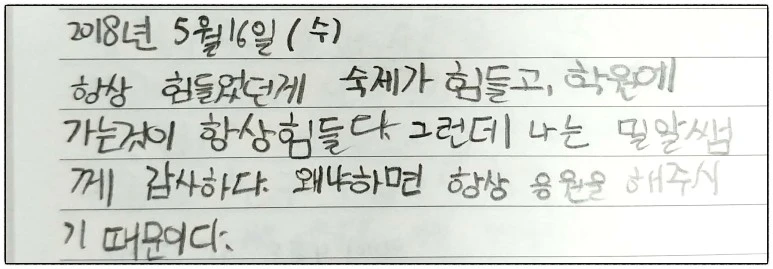 2018년 5월 16일 (수)
항상 힘들었던게 숙제가 힘들고, 학원에
가는것이 항상힘들다. 그런데 나는 밀알쌤
께 감사하다. 왜냐하면 항상 응원을 해주시
기 때문이다.